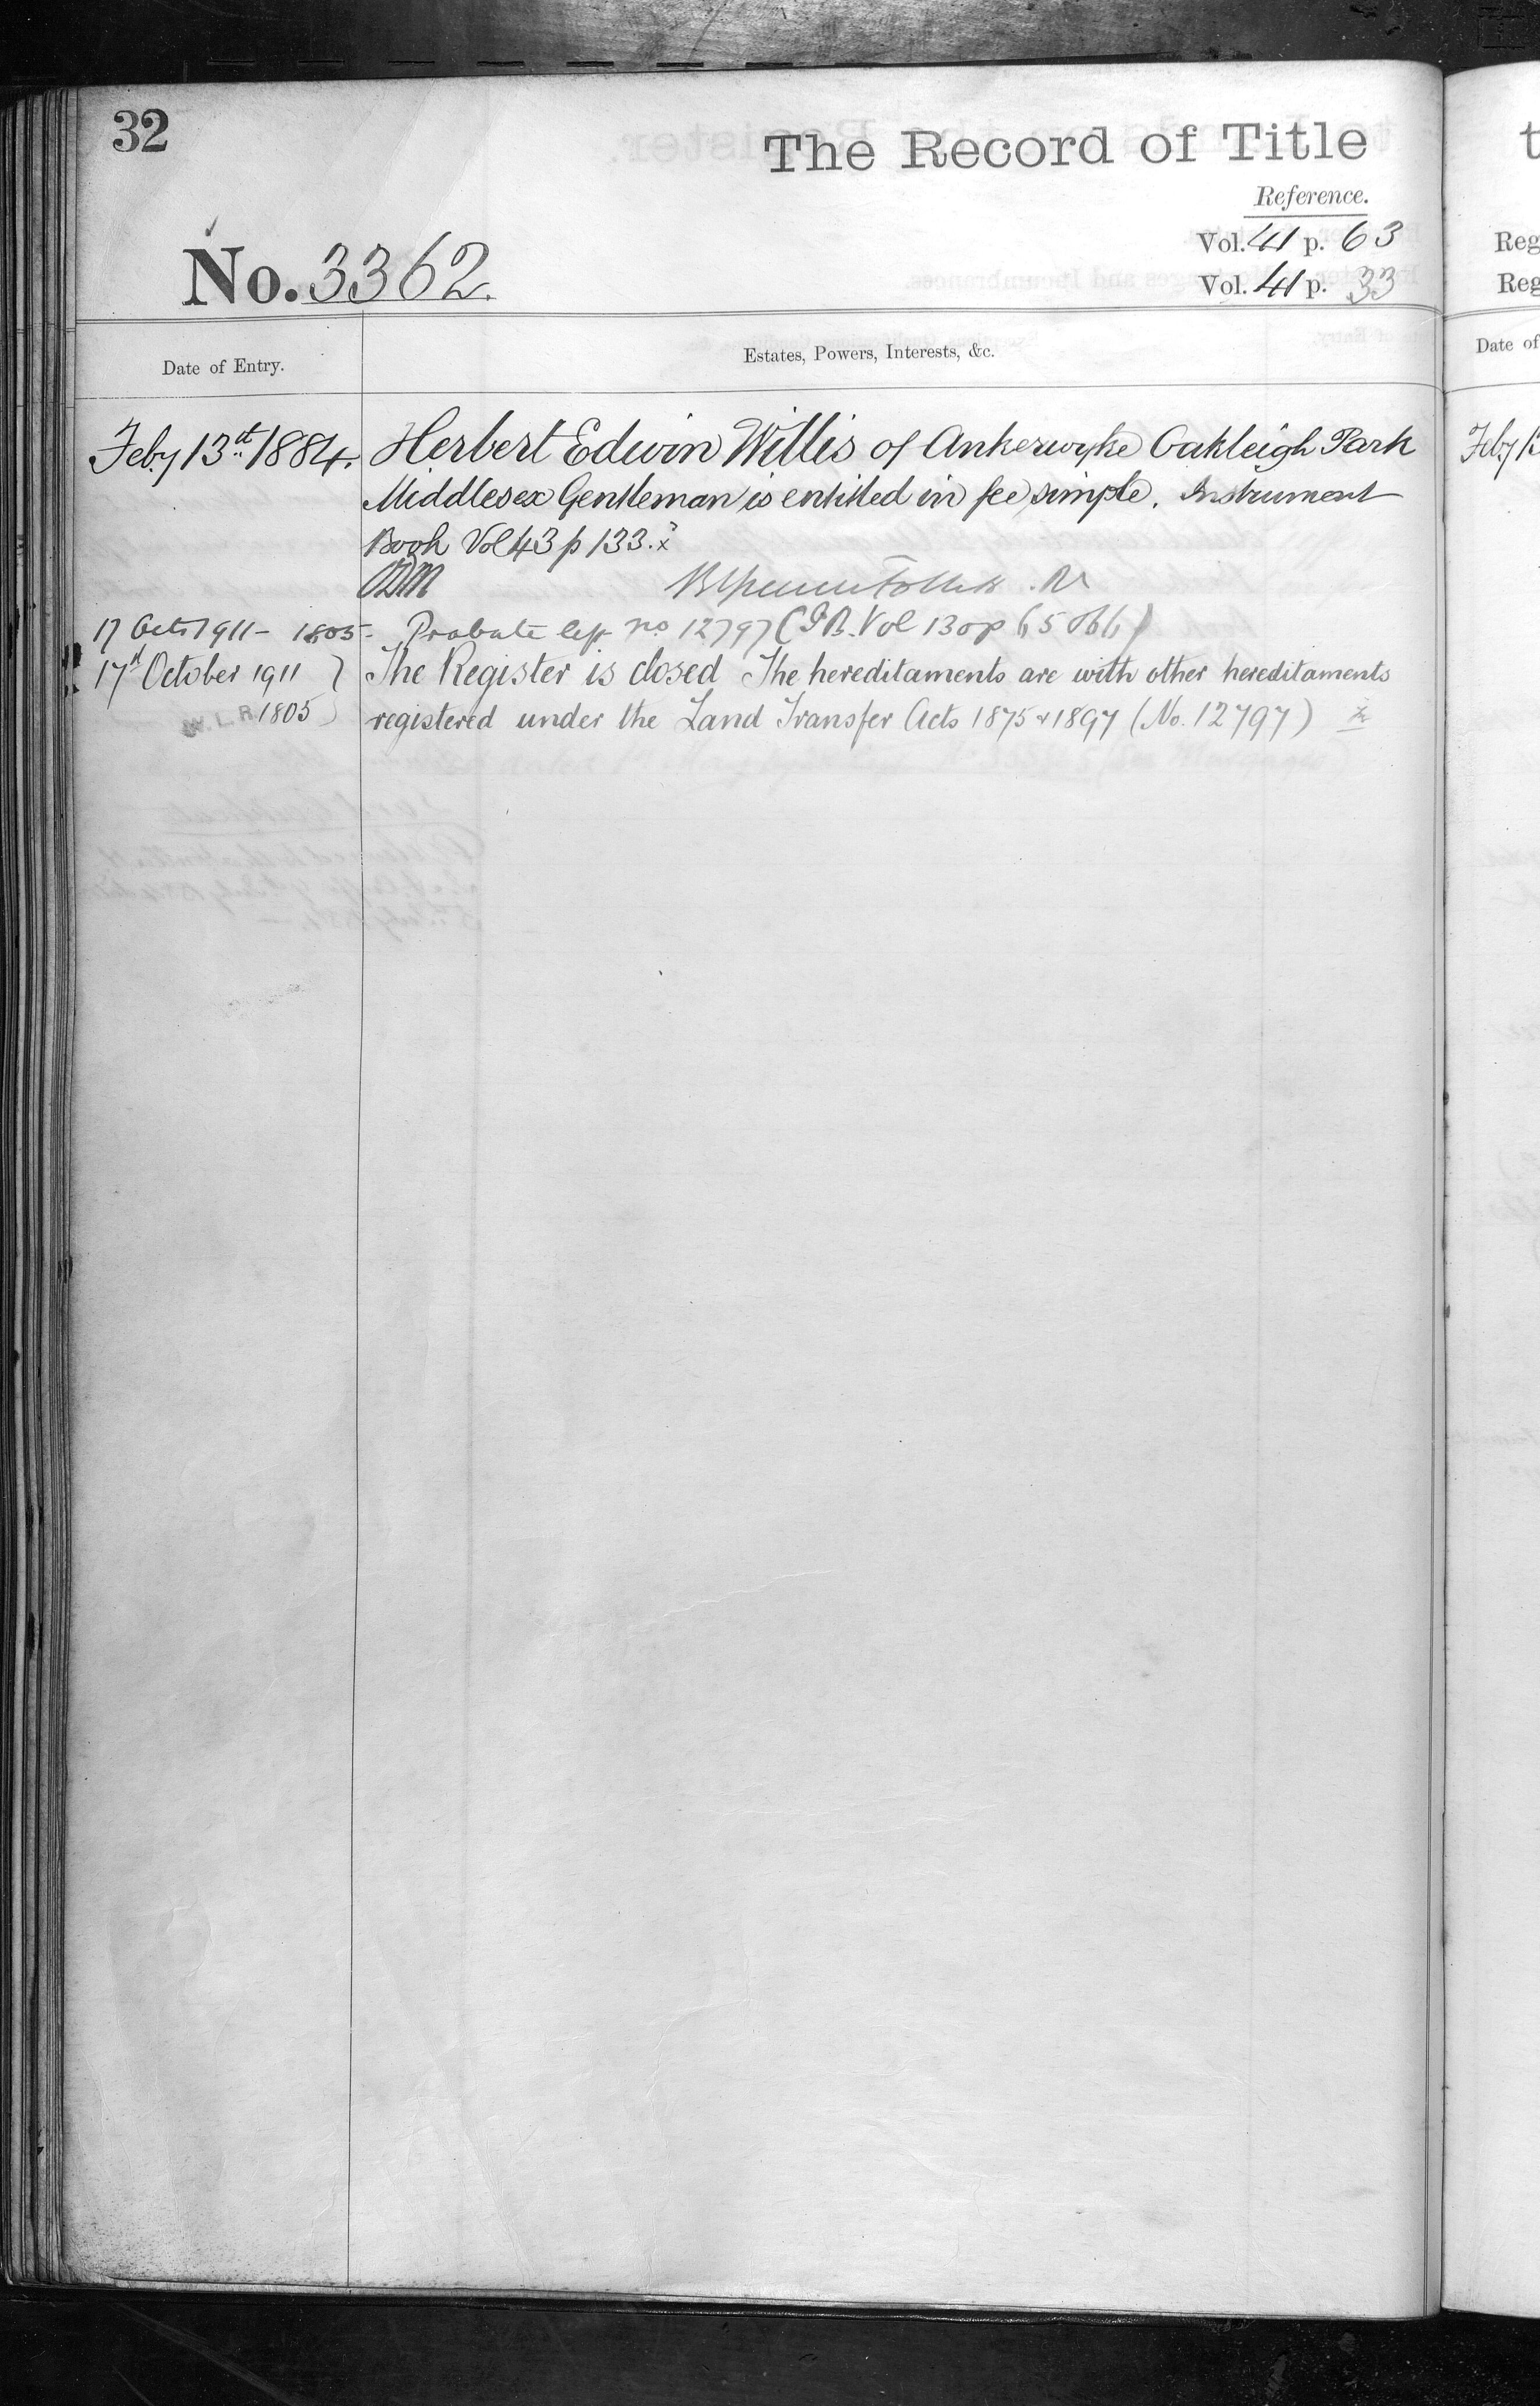 32
The Record of Title
Reference.
Vol. 41 p. 63
No. 3362.
Vol. 41 p. 33
Date of Entry.
Estates, Powers, Interests, &c.
Feby 13th 1884. Herbert Edwin Willis of Ankerwyke Oakleigh Park
Middlesex Gentleman is entitled in fee simple. Instrument
Book Vol 43 p 133. x
17 Oct 1911 - 1805 - Probate no 12797 (I.B. Vol 130 p 65 & 66)
17th October 1911 } The Register is closed The hereditaments are with other hereditaments
W.L.R. 1805 registered under the Land Transfer Acts 1875 & 1897 (No. 12797)
Reg
Reg
Date of
Feby 13